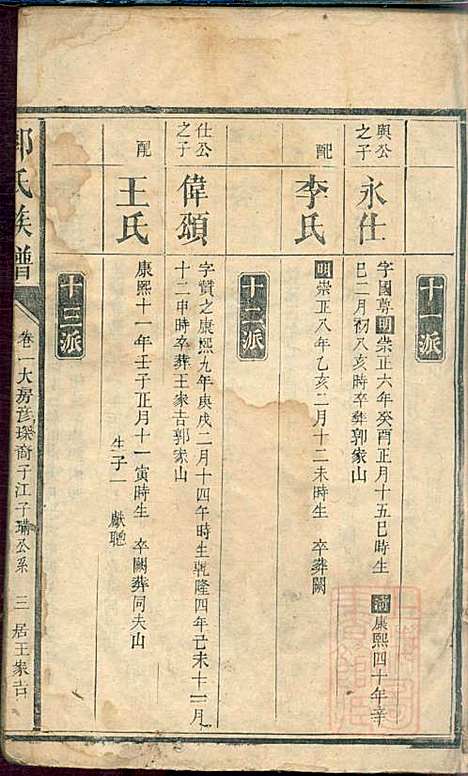 十一派
興公之子
永仕
字國尊明崇正六年癸酉正月十五巳時生 清康熙四十年辛
巳二月初八亥時卒葬郭家山
配
李氏
明崇正八年乙亥二月十二未時生 卒葬闕
十二派
仕公之子
偉頌
字贊之康熙九年庚戌二月十四午時生乾隆四年己未十一月
十二申時卒葬王家吉郭家山
配
王氏
康熙十一年壬子正月十一寅時生 卒闕葬同夫山
生子一 獻聰
十三派
郭氏族譜
卷一大房彥琛裔子江子璘公系 三 居王家吉